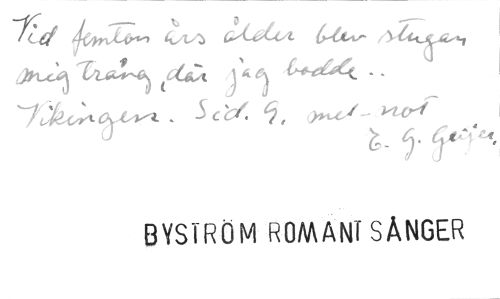 Vid femton års ålder blev stugan
mig trång, där jag bodde..
Vikingen. Sid. 9. mel-not
E. G. Geijer.
BYSTRÖM ROMANT SÅNGER